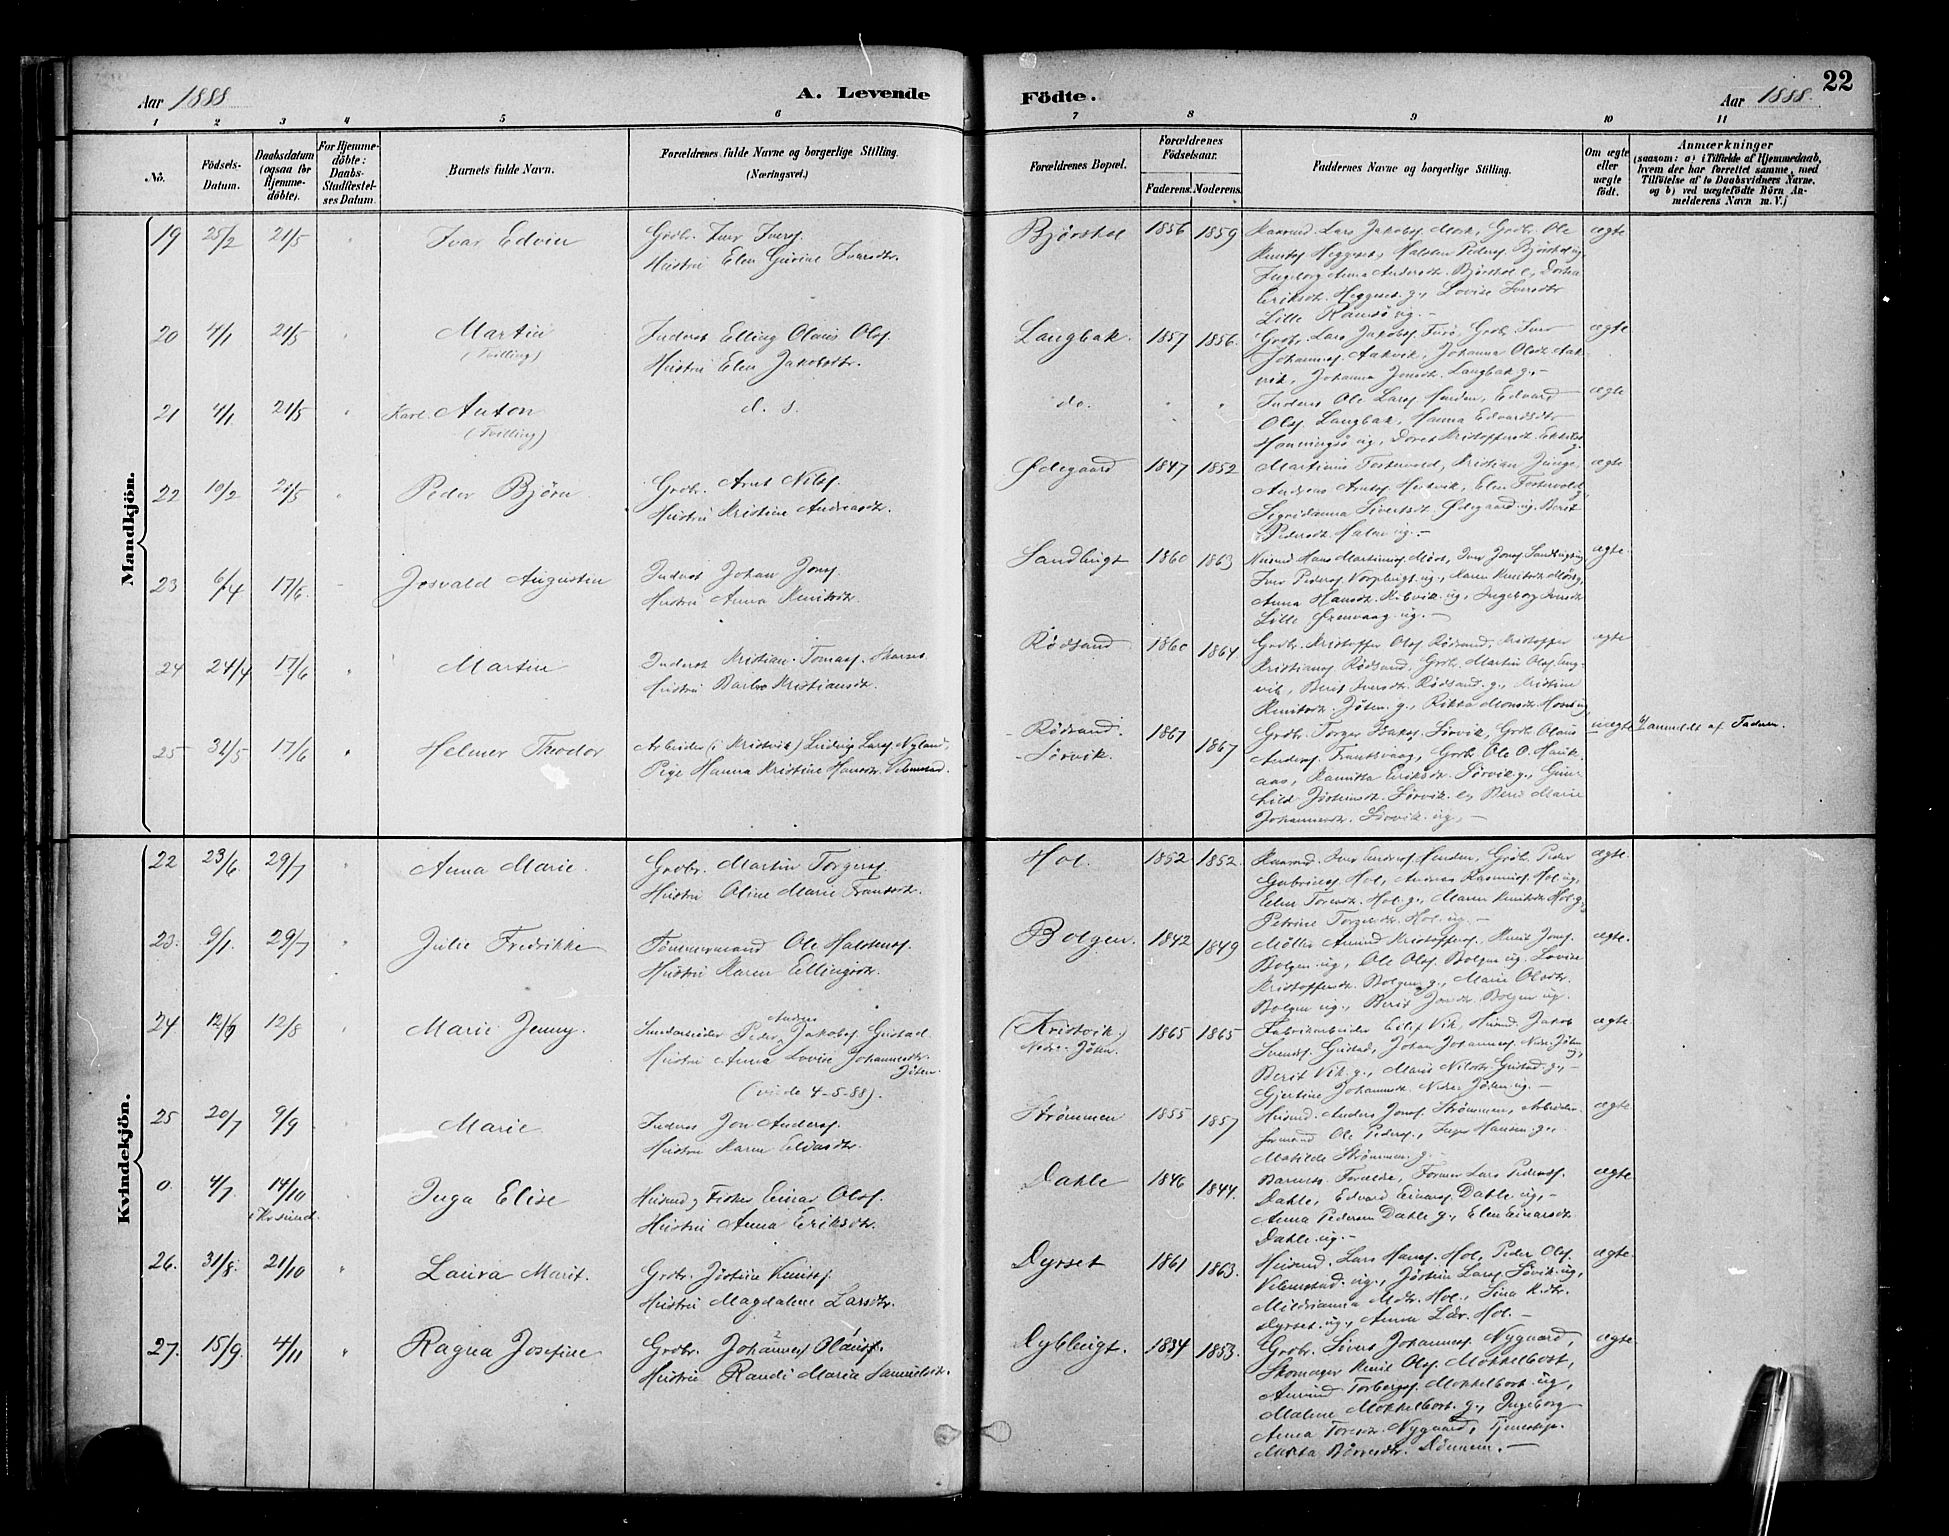 Aar 1888
A. Levende
Födte.
Aar 1888.
22
1 2 3 4 5 6 7 8 9 10 11
No.
Födsels-Datum.
Daabsdatum (ogsaa for Hjemme-döbte).
For Hjemme-döbte: Daabs-Stadfæstel-ses Datum.
Barnets fulde Navn.
Forældrenes fulde Navne og borgerlige Stilling.
(Næringsvei.)
Forældrenes Bopæl.
Forældrenes Födselsaar.
Faderens. Moderens.
Faddernes Navne og borgerlige Stilling.
Om ægte eller uægte födt.
Anmærkninger
(saasom: a) i Tilfælde af Hjemmedaab,
hvem der har forrettet samme, med
Tilföielse af to Daabsvidners Navne,
og b) ved uægtefödte Börn An-
melderens Navn m. V.)
Mandkjön.
19 25/2 21/5 " Ivar Edvin
Grdbr. Iver Ivers.
Hustru Elen Gurine Ivarsdtr.
Bjørshol 1856 1859
Lars Jakobs. Mork, Grdbr. Ole
Knuts. Heggset, Halsten Peders. Bjørshol ug.
Ingeborg Anna Andersdtr. Bjørshol e., Dorthea
Eriksdtr. Heggset g., Lovise Iversdtr.
Lille Ramsø ug. —
ægte
20 4/1 21/5 " Martin
(Tvilling)
Inderst Elling Olaus Ols.
Hustru Elen Jakobsdtr.
Langbak. 1857 1856.
Grdbr. Lars Jakobs. Furø, Grdbr. Iver
Johannes. Aakvik, Johanna Olsdtr. Aak-
vik, Johanna Jonsdtr. Langbak g. —
ægte
21 4/1 21/5 " Karl Anton
(Tvilling)
d. s.
do. " "
Inderst Ole Lars. Henden, Edvard
Ols. Langbak, Hanna Edvardsdtr.
Honningsø ug., Doret Kristoffersdtr.
ægte
22 10/2 21/5 " Peder Bjørn
Grdbr. Arnt Nils.
Hustru Kristine Andreasdtr.
Ødegaard 1847 1852
Martinus Fostervold, Kristian Junge,
Andreas Arnts. Hestvik, Elen Fostervold g.,
Sigridanna Sivertsdtr. Ødegaard ug. Berit
Pedersdtr. Halsa ug. —
ægte
23 6/4 17/6. Josvald Augustin
Inderst Johan Jons.
Hustru Anna Knutsdtr.
Sandbugt 1860 1863
Husmd. Hans Martinus. Mørk, Iver Jons. Sandbugt ug.
Iver Peders. Vorpbugt ug., Karen Knutsdtr. Mørk g.,
Anna Hansdtr. Ribvik ug., Ingeborg Iversdtr.
Lille Ørenvaag ug. —
ægte.
24 24/4 17/6 " Martin
Inderst Kristian Tomas. Skarset
Hustru Barbro Kristiansdtr.
Rødsand 1860 1864
Grdbr. Kristoffer Ols. Rødsand, Kristoffer
Kristians. Rødsand, Grdbr. Martin Ols. Eng-
vik, Berit Iversdtr. Rødsand g., Kristine
Knutsdtr. Jøten g., Rikka Monsdtr.
ægte
25 31/5 17/6 " Helmer Theodor
Arbeider (i Kristvik) Ludvig Lars. Nyland,
Pige Hanna Kristine Hansdtr. Velmstad.
Rødsand.
Sørvik. 1867 1867
Grdbr. Torger Isaks. Sørvik, Grdbr. Olaus
Anders. Frantsvaag, Grdbr. Ole O. Hauk-
aas, Kanutta Eriksdtr. Sørvik g., Gun-
hild Jøstensdtr. Sørvik e., Berit Marie
Johannesdtr. Sørvik ug. —
uægte b) anmeldt af Faderen.
Kvindekjön.
22 23/6 29/7 " Anna Marie.
Grdbr. Martin Torgers.
Hustru Oline Marie Frantsdtr.
Hol. 1852 1852.
Iver Henden, Grdbr. Peder
Gabriels. Hol, Andreas Rasmus. Hol ug.,
Elen Toresdtr. Hol g., Maren Knutsdtr. Hol g.,
Petrine Torgersdtr. Hol ug. —
ægte.
23. 9/1. 29/7 " Julie Fredrikke
Tømmermand Ole Halstens.
Hustru Karen Ellingsdtr.
Bolgen. 1842 1849
Møller Amund Kristoffers., Knut Jons.
Bolgen ug., Ole Ols. Bolgen ug. Lovise
Kristoffersdtr. Bolgen g., Marie Olsdtr.
Bolgen ug., Berit Jonsdtr. Bolgen ug.
ægte.
24 12/6 12/8 " Marie Jenny.
Anders
Peder Jakobs. Gustad.
Hustru Anna Lovise Johannesdtr.
Jøten.
(viede 4-5-88).
(Kristvik)
Nedre Jøten. 1865 1865
Fabrikarbeider Eilif Vik, Husmd. Jakob
Svends. Gustad, Johan Johannes. Nedre Jøten ug.,
Berit Vik g., Marit Nilsdtr. Gustad g., —
Gjertine Johannesdtr. Nedre Jøten ug. —
ægte.
25 20/7 9/9 Marie
Inderst Jon Anders.
Hustru Karen Eliasdtr.
Strømmen 1855 1857
Husmd. Anders Jons. Strømmen, Arbeider-
formand Ole Peders., Inger Hansen g.,
Matilde Strømmen g. —
ægte
0. 4/7 14/10
i Kr.sund. Inga Elise
Husmd. og Fisker Einar Ols.
Hustru Anna Eriksdtr.
Dahle 1846 1844.
Barnets Forældre, Lars Peders.
Dahle, Edvard Einars. Dahle ug., —
Anna Pedersen Dahle g., Elen Einarsdtr.
Dahle ug. —
ægte
26. 31/8. 21/10 " Laura Marit.
Grdbr. Jøsten Knuts.
Hustru Magdalene Larsdtr.
Dyrset 1861 1863.
Husmd. Lars Hans. Hol, Peder Ols.
Velmstad ug., Jøsten Lars. Søvik ug.,
Mildrianna Mdtr. Hol, Sina Kdtr.
Dyrset ug., Anna Ldtr. Hol. —
ægte
27. 15/9. 4/11 " Ragna Josefine
2 1
Grdbr. Johannes Olaus.
Hustru Randi Maria Samuelsdtr.
Dybbugt. 1834 1853.
Grdbr. Sivert Johannes. Nygaard,
Skomager Knut Ols. Mokkelbost,
Amund Torbergs. Mokkelbost ug.,
Malene Mokkelbost g., Ingeborg
Anna Toresdtr. Nygaard, Tjenestepi.
Marta Børresdtr. Rønnem. —
ægte